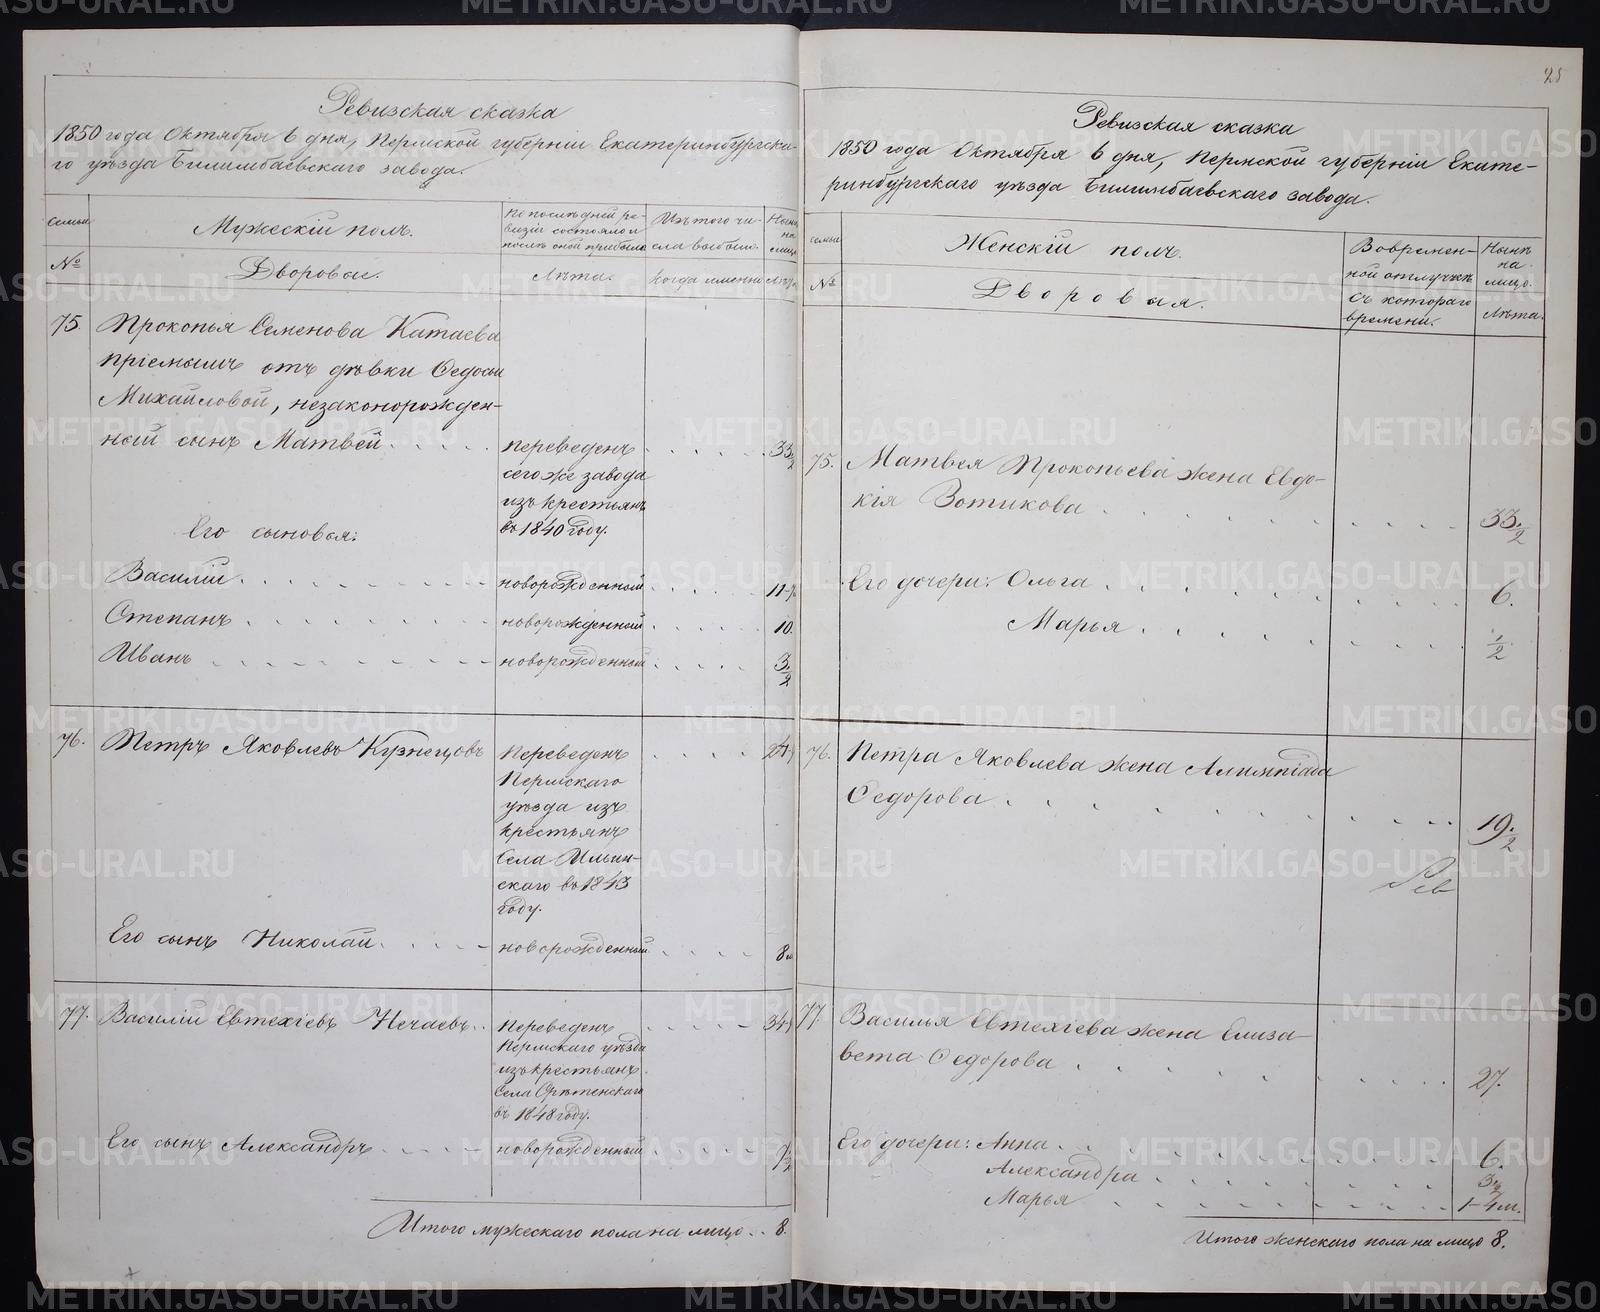 25
Ревизская сказка
1850 года Октября 6 дня, Пермской губерніи Екатеринбургска-
го уѣзда Билимбаевскаго завода.
семьи
Мужескій полъ.
По послѣдней ре-
визіи состояло и
послѣ оной прибыло
Изъ того чи-
сла выбыло.
Нынѣ
на
лицо
№
Дворовые.
Лѣта.
Когда именно
Лѣта
75.
Прокопья Семенова Катаева
пріемышъ отъ дѣвки Ѳедосьи
Михайловой, незаконорожден-
ный сынъ Матвей
переведенъ
сего же завода
изъ крестьянъ
въ 1840 году.
33 1/2
Его сыновья:
Василій
новорожденный
11
Степанъ
новорожденный
10.
Иванъ
новорожденный
3 1/2
76.
Петръ Яковлевъ Кузнецовъ
Переведенъ
Пермскаго
уѣзда изъ
крестьянъ
Села Ильин-
скаго въ 1843
году.
24
Его сынъ Николай
новорожденный
8 м
77.
Василій Евтехіевъ Нечаевъ
Переведенъ
Пермскаго уѣзда
изъ крестьянъ
Села Срѣтенскаго
въ 1848 году.
34
Его сынъ Александръ
новорожденный
Итого мужескаго пола на лицо 8.
Ревизская сказка
1850 года Октября 6 дня, Пермской губерніи Екате-
ринбургскаго уѣзда Билимбаевскаго завода.
семьи
Женскій полъ.
Во времен-
ной отлучкѣ
съ котораго
времени.
Нынѣ
на
лицо.
№
Дворовыя.
Лѣта.
75.
Матвея Прокопьева жена Евдо-
кія Зотикова
33 1/2
Его дочери: Ольга
6.
Марья
1/2
76.
Петра Яковлева жена Алимпіада
Ѳедорова
19 1/2
77.
Василья Евтехіева жена Елиза-
вета Ѳедорова
27.
Его дочери: Анна
6.
Александра
3 1/2
Марья
1-4 м.
Итого женскаго пола на лицо 8.
METRIKI.GASO-URAL.RU